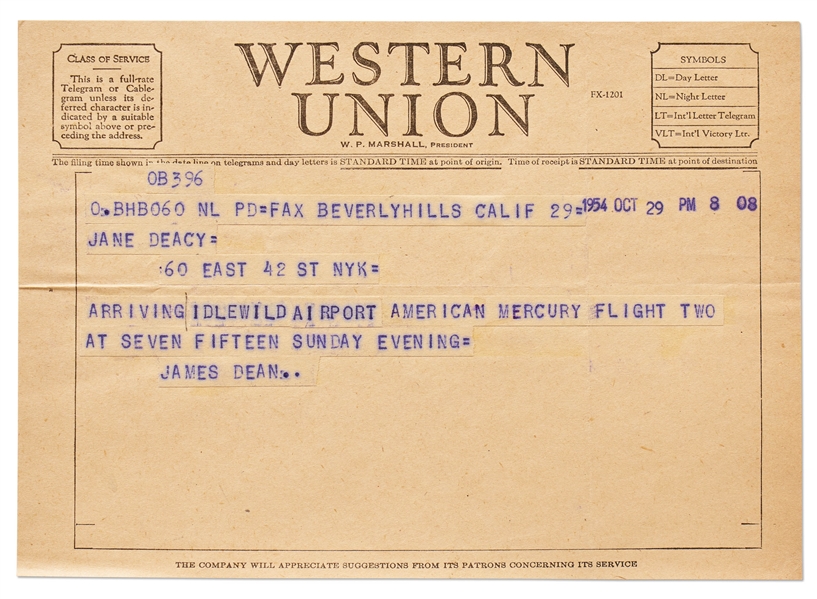 CLASS OF SERVICE
This is a full-rate
Telegram or Cable-
gram unless its de-
ferred character is in-
dicated by a suitable
symbol above or pre-
ceding the address.
WESTERN
UNION
W. P. MARSHALL, PRESIDENT
FX-1201
SYMBOLS
DL=Day Letter
NL=Night Letter
LT=Int'l Letter Telegram
VLT=Int'l Victory Ltr.
The filing time shown in the date line on telegrams and day letters is STANDARD TIME at point of origin. Time of receipt is STANDARD TIME at point of destination
OB396
O.BHB060 NL PD=FAX BEVERLYHILLS CALIF 29= 1954 OCT 29 PM 8 08
JANE DEACY=
:60 EAST 42 ST NYK=
ARRIVING IDLEWILD AIRPORT AMERICAN MERCURY FLIGHT TWO
AT SEVEN FIFTEEN SUNDAY EVENING=
JAMES DEAN..
THE COMPANY WILL APPRECIATE SUGGESTIONS FROM ITS PATRONS CONCERNING ITS SERVICE